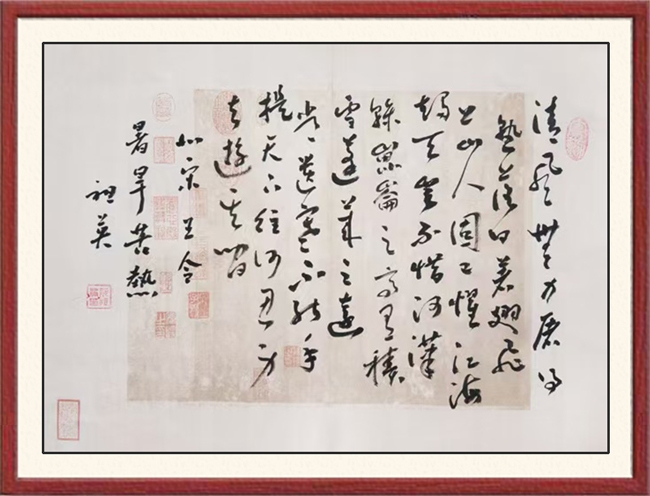 清風無力屠得
熱落日著翅飛
上山人固已懼江海
竭天豈不惜河漢
乾崑崙之高有積
雪蓬萊之遠
常遺寒不能手
提天下往何忍身
去遊其間
北宋王令
暑旱苦熱
祖英